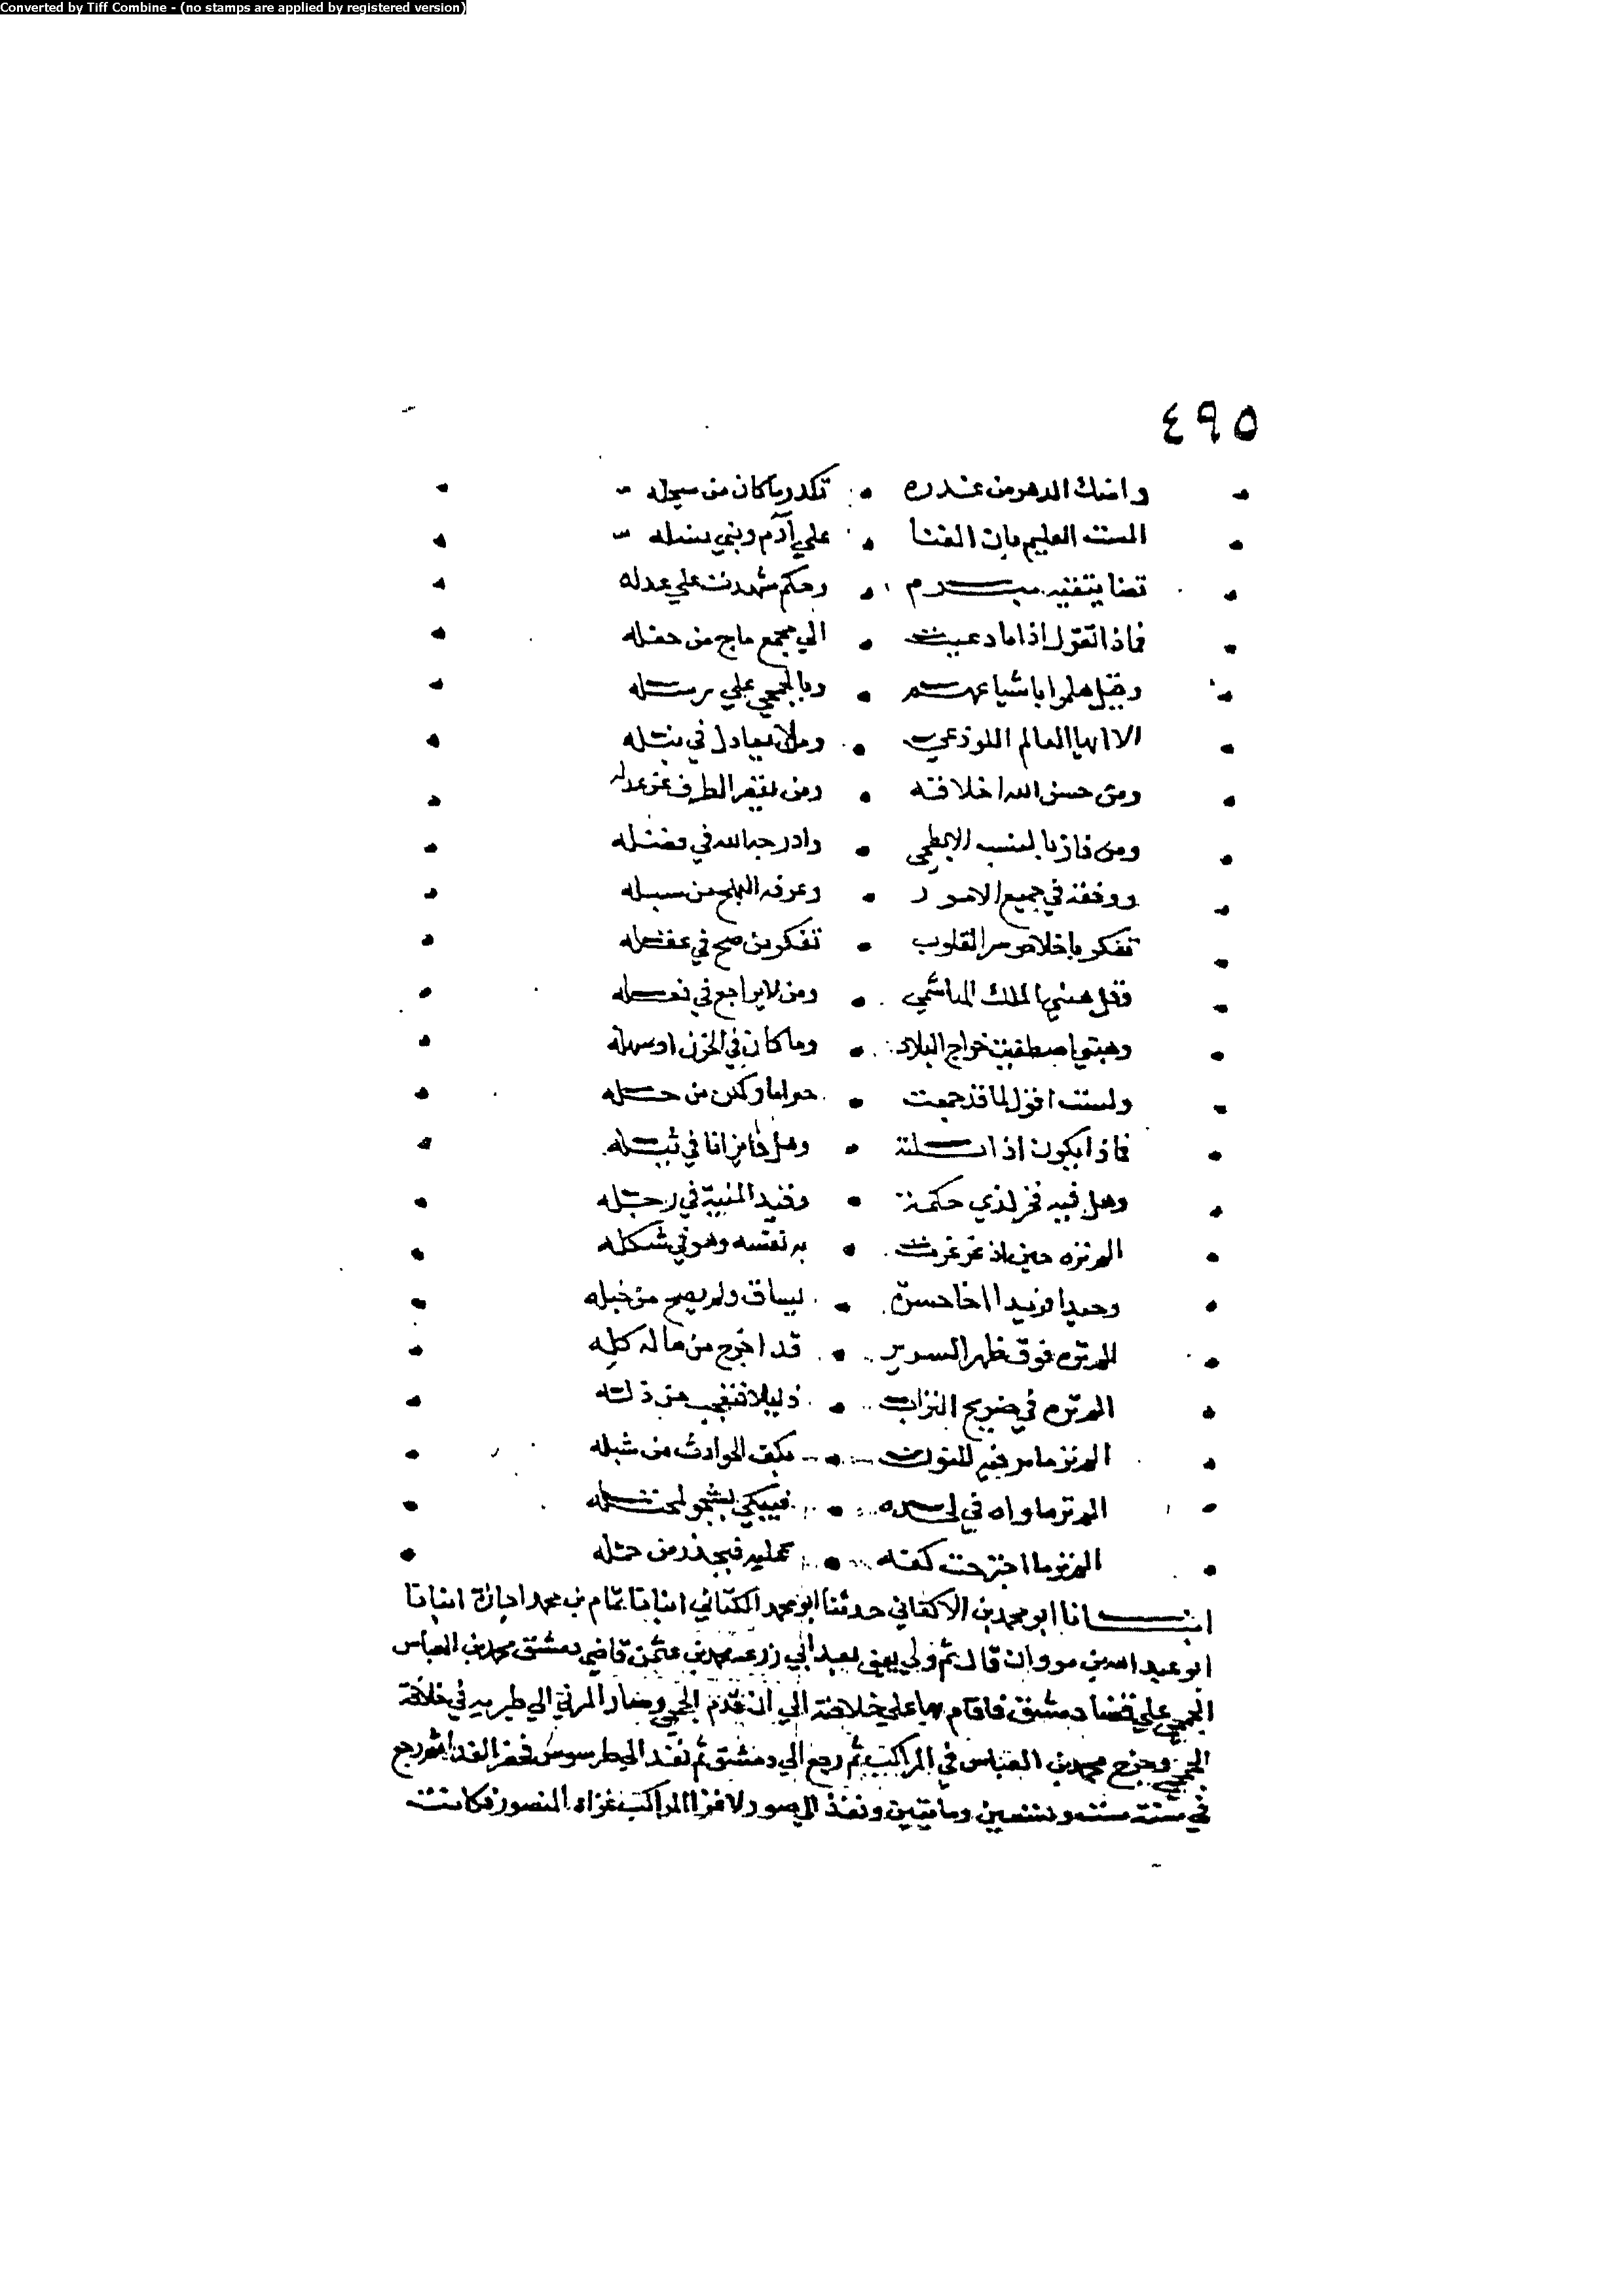 Converted by Tiff Combine - (no stamps are applied by registered version)
٤٩٥
الدهر من غدره تكدر ما كان من سجله
الست العليم بان الفنا علي آدم وبني نسله
مبرم وحكم شهدت علي عدله
فماذا تقول اذا ما دعيت الي مجمع ماج من حفله
وقيل هلموا باشياعهم وبالجمحي علي رسله
الا ايها العالم اللوذعي ومن لا يعادل في نبله
ومن حسن الله اخلاقه ومن الطرف عن عدله
ومن فاز بالمنسب الابطحي في فضله
ووفقه في جميع الامور وعرفه من سبله
تفكر باخلاص سر القلوب تفكر من صح في عقله
وقل الملك الهاشمي ومن لا يراجع في فعله
وهبني اصطفيت خراج البلاد وما كان في الحزن او سهله
ولست اقول لما قد جمعت حراما ولكن من حله
فماذا يكون اذا نلته وهل انا في
وهل فيه فخر لذي حكمة وقيد المنية في رجله
الم تره حين اذ غرغرت به نفسه وهو في شكله
وحيدا فريدا اخا حسرة يساق ولم يصح من خبله
الم تره فوق ظهر السرير قد اخرج من ماله كله
الم تره في ضريح التراب ذليلا من ذله
الم تر ما مر فيه المنون بكف الحوادث من شبله
الم تر ما واه في لحده فيبكي بشجو
الم تر ما اجترحت كفه عليه فيحذر من مثله
انبانا ابو محمد بن الاكفاني حدثنا ابو محمد الكتاني انبانا تمام بن محمد اجازة انبانا
ابو عبد الله بن مروان قال ثم ولي يعني بعد ابي زرعه محمد بن عثمن قاضي دمشق محمد بن العباس
الجمحي علي قضا دمشق فاقام بها علي خلافته الي ان تقدم الجمحي وصار المرني الي طبريه في خلافة
الجمحي وخرج محمد بن العباس في المراكب ثم رجع الي دمشق ثم نفذ الي طرسوس الفدا ثم رجع
في سنة ست وتسعين ومايتين ونفذ الي صور لاغزا المراكب غزاه المنصور فكانت